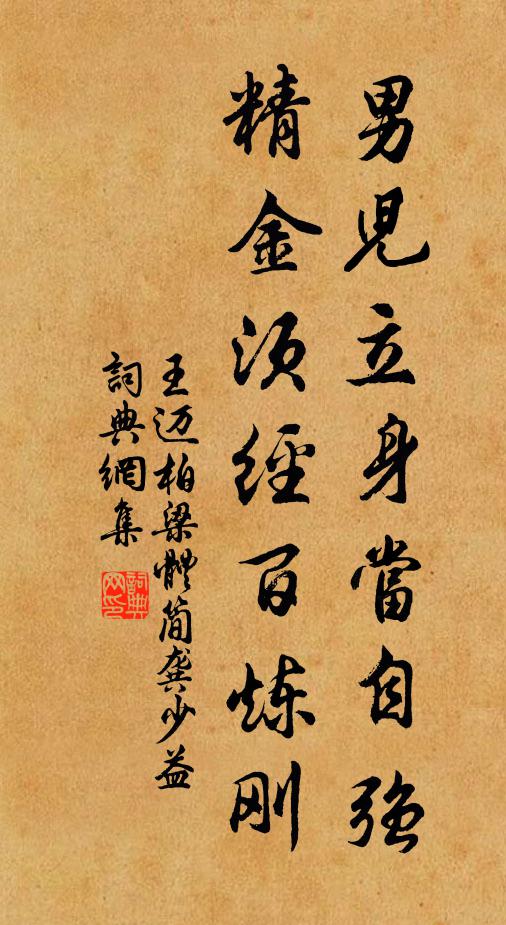 男児立身當自強
精金須經百炼刚
王迈柏梁體簡龔少益
詞典網集
詞典網印